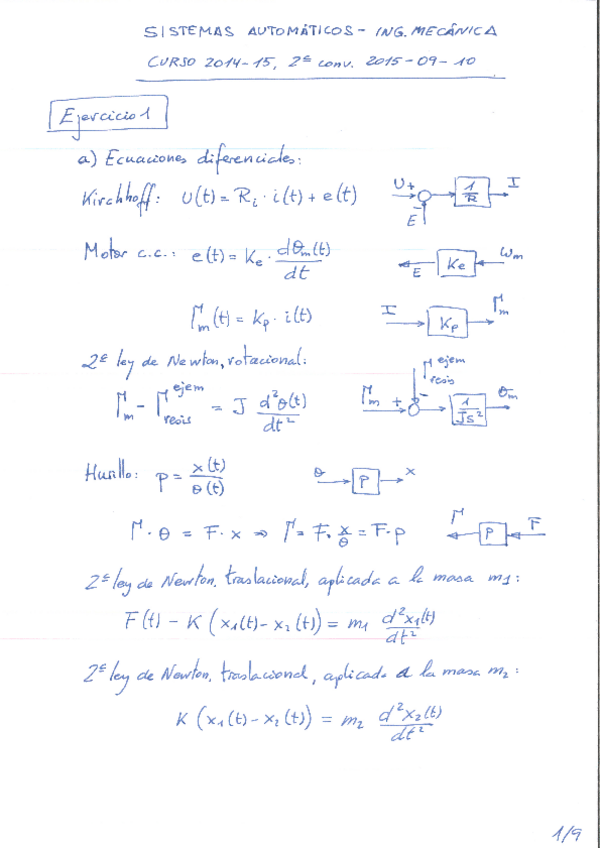 SISTEMAS AUTOMÁTICOS - ING. MECÁNICA
CURSO 2014-15, 2ª conv. 2015-09-10
Ejercicio 1
a) Ecuaciones diferenciales:
Kirchhoff: U(t) = Ri · i(t) + e(t)
U + 1/R I
E -
Motor c.c.: e(t) = Ke · dθm(t)/dt
E Ke ωm
Γm(t) = Kp · i(t)
I Kp Γm
2ª ley de Newton, rotacional:
Γm - Γresis^ejem = J d²θ(t)/dt²
Γm + Γresis^ejem - 1/Js² θm
Husillo: p = x(t)/θ(t)
θ P x
Γ · θ = F · x ⇒ Γ = F · x/θ = F · p
Γ P F
2ª ley de Newton, traslacional, aplicada a la masa m1:
F(t) - K (x1(t) - x2(t)) = m1 d²x1(t)/dt²
2ª ley de Newton, traslacional, aplicada a la masa m2:
K (x1(t) - x2(t)) = m2 d²x2(t)/dt²
1/9